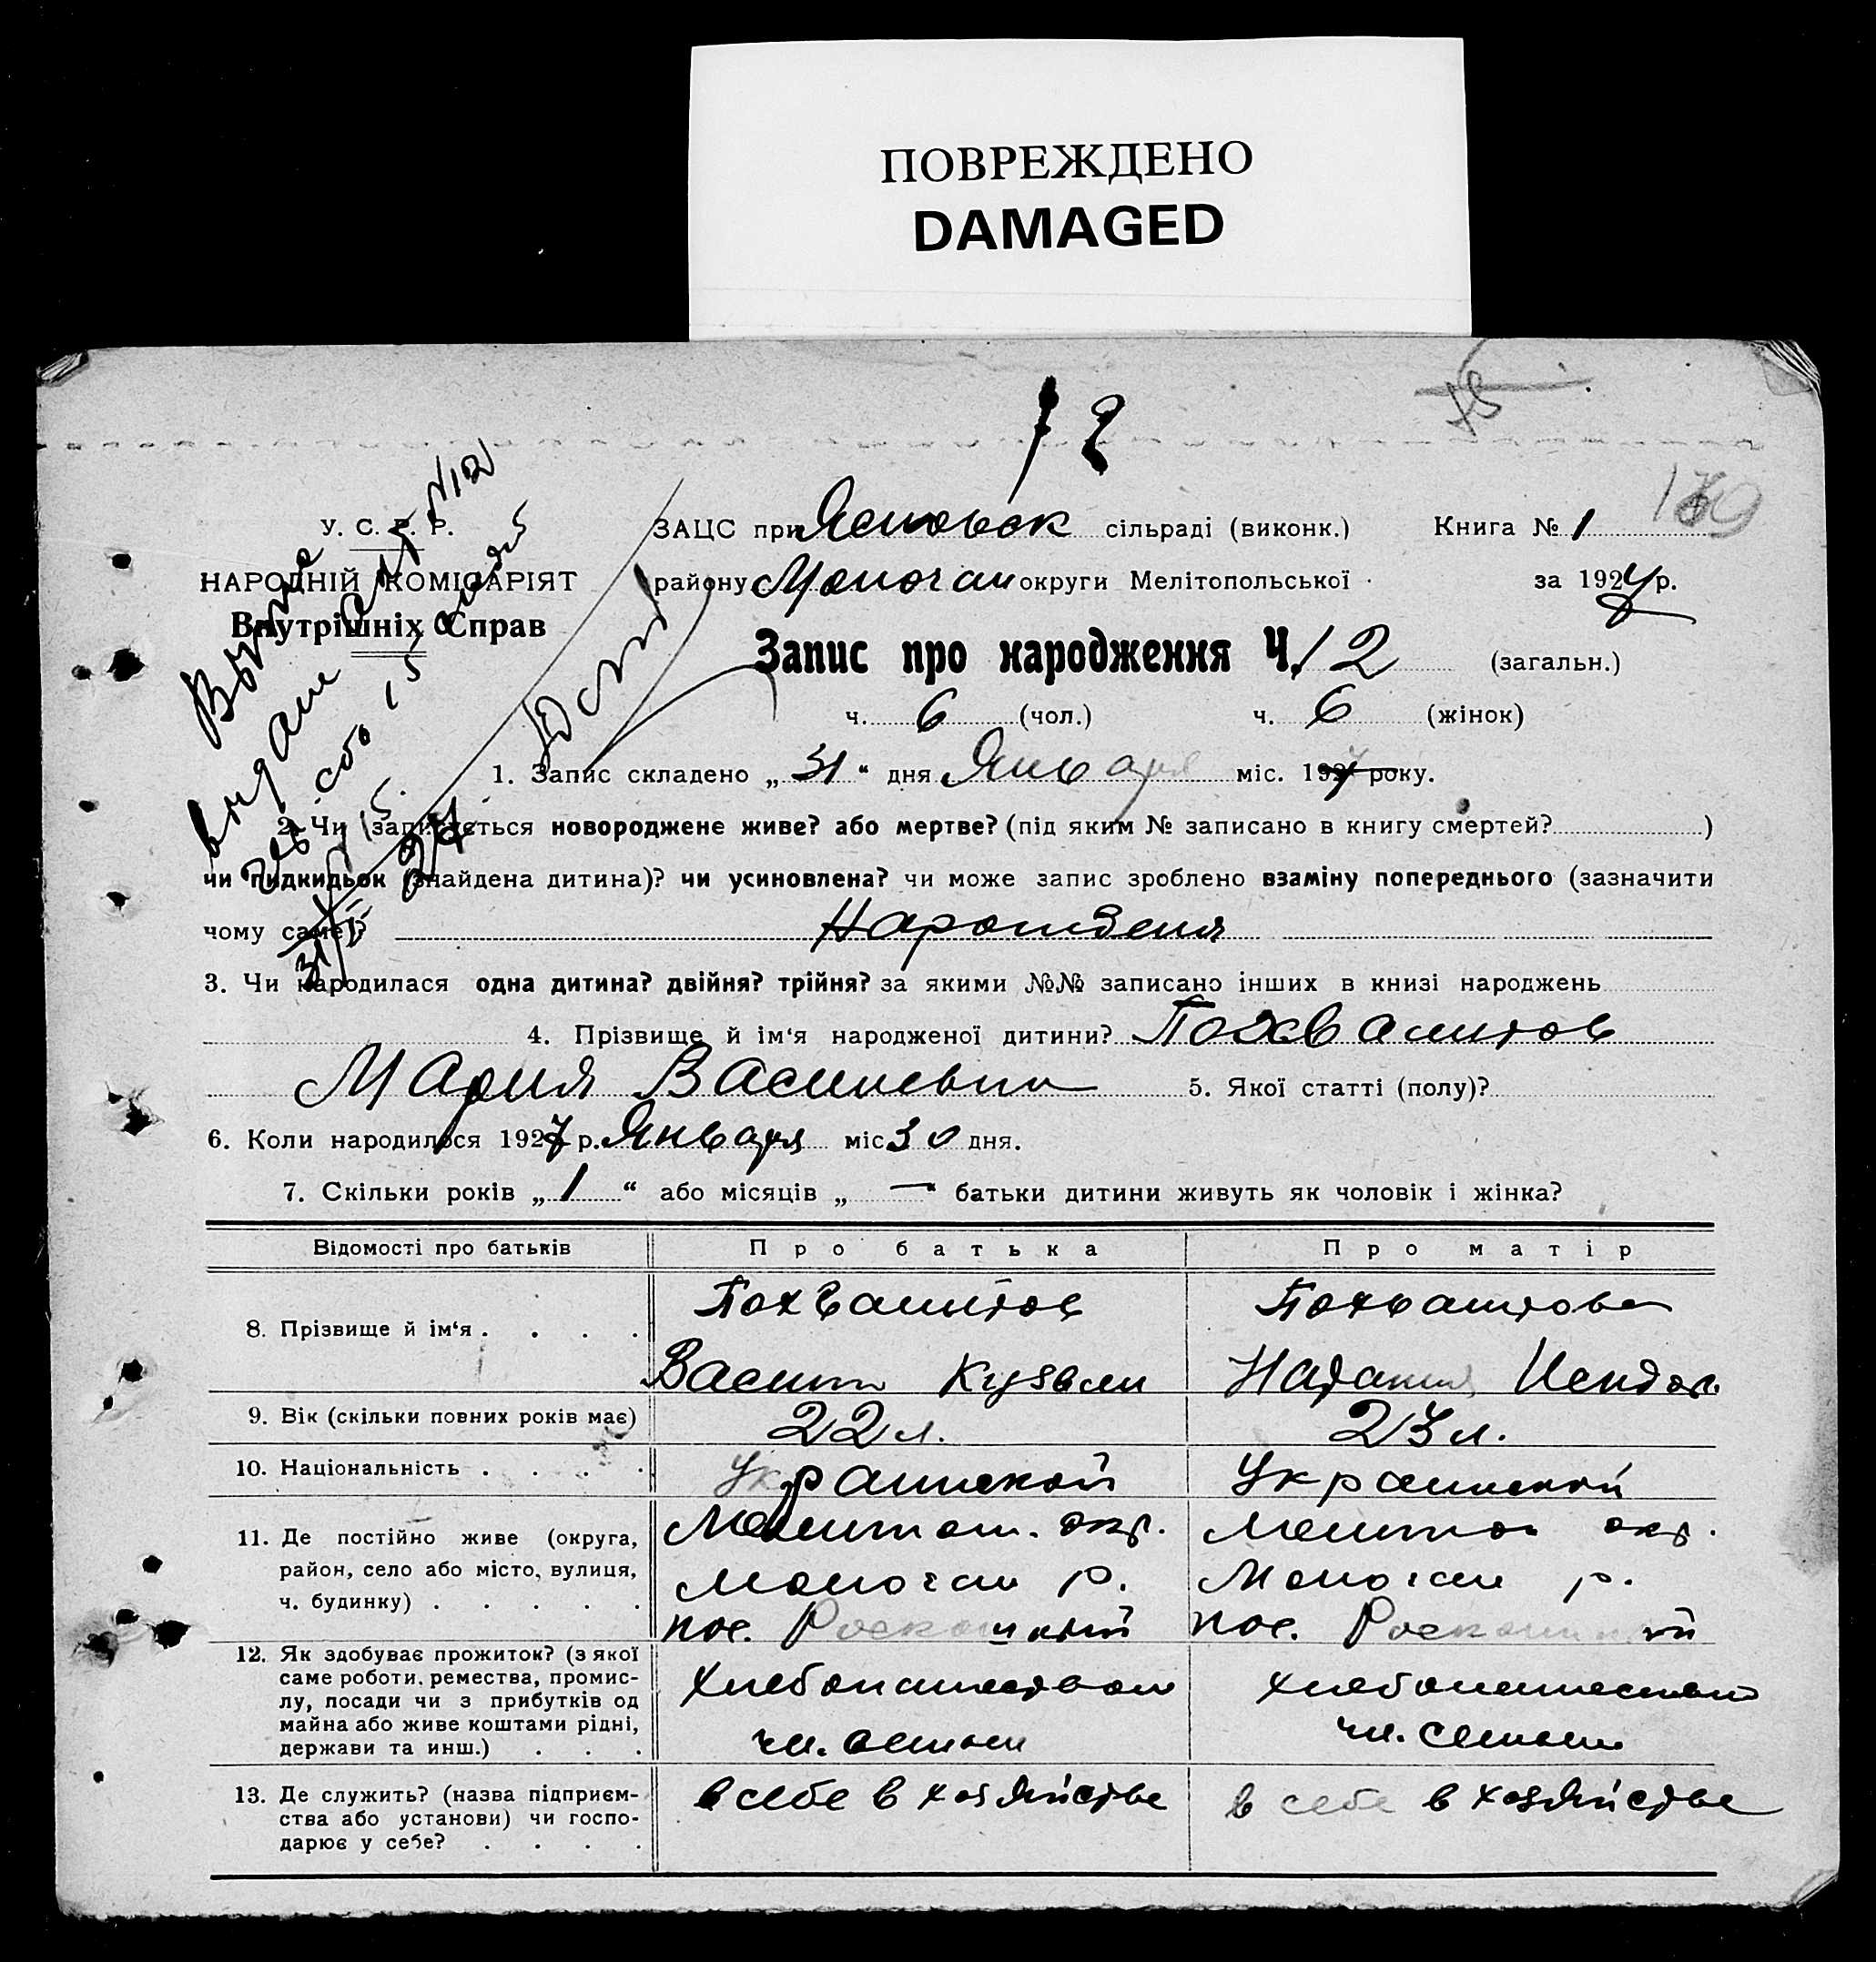 ПОВРЕЖДЕНО
DAMAGED
12
У. С. Р. Р.
НАРОДНІЙ КОМІСАРІЯТ
Внутрішніх Справ
ЗАЦС при сільраді (виконк.) Книга № 1
району округи Мелітопольської за 1927 р.
Запис про народження Ч. 12 (загальн.)
ч. 6 (чол.) ч. 6 (жінок)
1. Запис складено „ 31 “ дня Января міс. 1927 року.
2. Чи записується новороджене живе? або мертве? (під яким № записано в книгу смертей? )
чи підкидьок (знайдена дитина)? чи усиновлена? чи може запис зроблено взаміну попереднього (зазначити
чому саме)?
3. Чи народилася одна дитина? двійня? трійня? за якими №№ записано інших в книзі народжень
4. Прізвище й ім‘я народженої дитини? Похвалитов
Мария Васильевна 5. Якої статті (полу)?
6. Коли народилося 1927 р. Января міс 30 дня.
7. Скільки років „ 1 “ або місяців „ — “ батьки дитини живуть як чоловік і жінка?
Відомості про батьків Про батька Про матір
8. Прізвище й ім‘я . . . . Похвалитов Похвалитова
Васили Кузьми Наталия
9. Вік (скільки повних років має) 22 л. 23 л.
10. Національність . . . . Украинской Украинской
11. Де постійно живе (округа, Мелитоп. окр. Мелитоп окр.
район, село або місто, вулиця, р. р.
ч. будинку) . . . . . пос. Роскошный пос. Роскошный
12. Як здобуває прожиток? (з якої
саме роботи, ремества, промис- Хлебопашеством хлебопашеством
лу, посади чи з прибутків од
майна або живе коштами рідні, чл. семьи чл. семьи
держави та инш.) . . .
13. Де служить? (назва підприєм- в себе в хозяйстве в себе в хозяйстве
ства або установи) чи госпо-
дарює у себе? . . . .